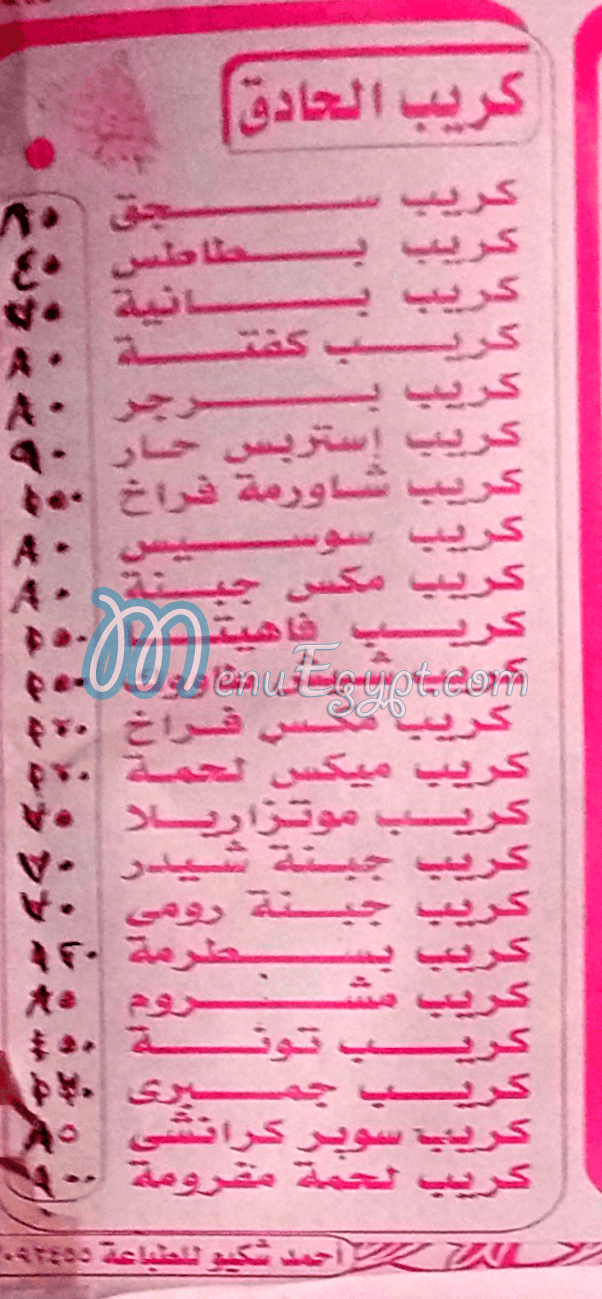 كريب الحادق
كريب سجق ٨٥
كريب بطاطس ٤٥
كريب بانية ٧٥
كريب كفتة ٨٠
كريب برجر ٨٠
كريب إستربس حار ٩٠
كريب شاورمة فراخ
كريب سوسيس ٨٠
كريب مكس جبنة ٨٠
كريب فاهيتا
كريب شيش طاووك
كريب مكس فراخ
كريب ميكس لحمة
كريب موتزاريلا ٧٥
كريب جبنة شيدر ٧٠
كريب جبنة رومى ٧٠
كريب بسطرمة
كريب مشروم ٨٥
كريب تونة
كريب جمبرى
كريب سوبر كرانشى ٨٥
كريب لحمة مفرومة
MenuEgypt.com
أحمد شكيو للطباعة